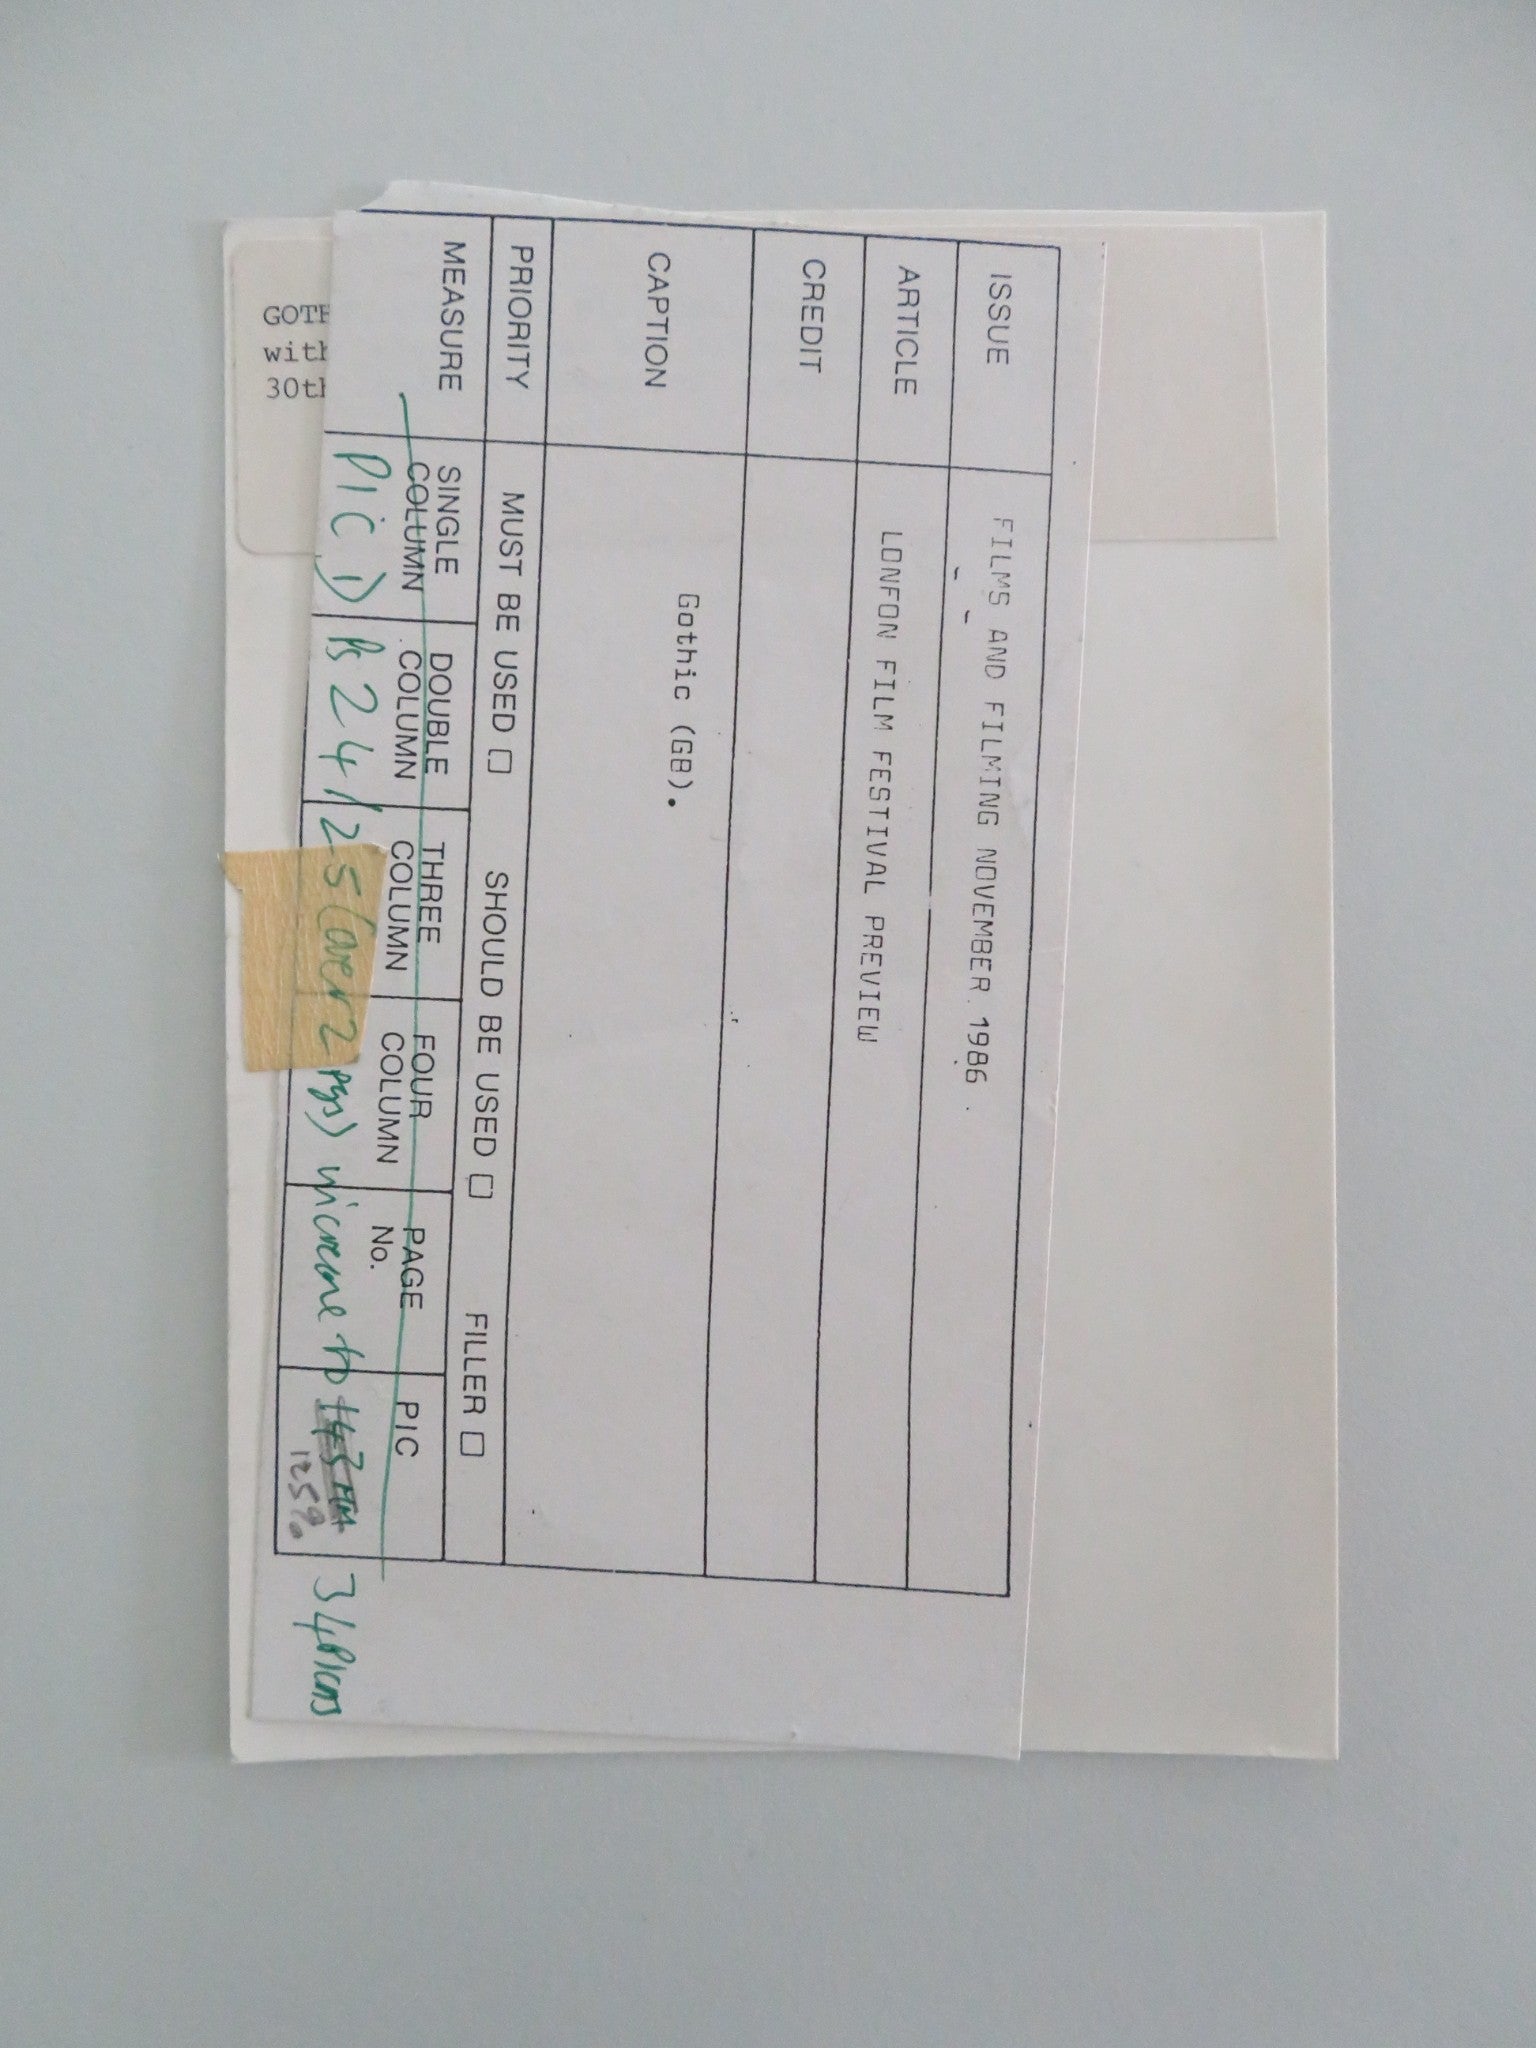 GOTH
with
30th
ISSUE FILMS AND FILMING NOVEMBER 1986.
ARTICLE LONFON FILM FESTIVAL PREVIEW
CREDIT
CAPTION Gothic (GB).
PRIORITY MUST BE USED SHOULD BE USED FILLER
MEASURE SINGLE COLUMN DOUBLE COLUMN THREE COLUMN FOUR COLUMN PAGE No. PIC
PIC 1) PG 24/25 (over 2 pgs) increase to 143 MM 34 PICAS
125%